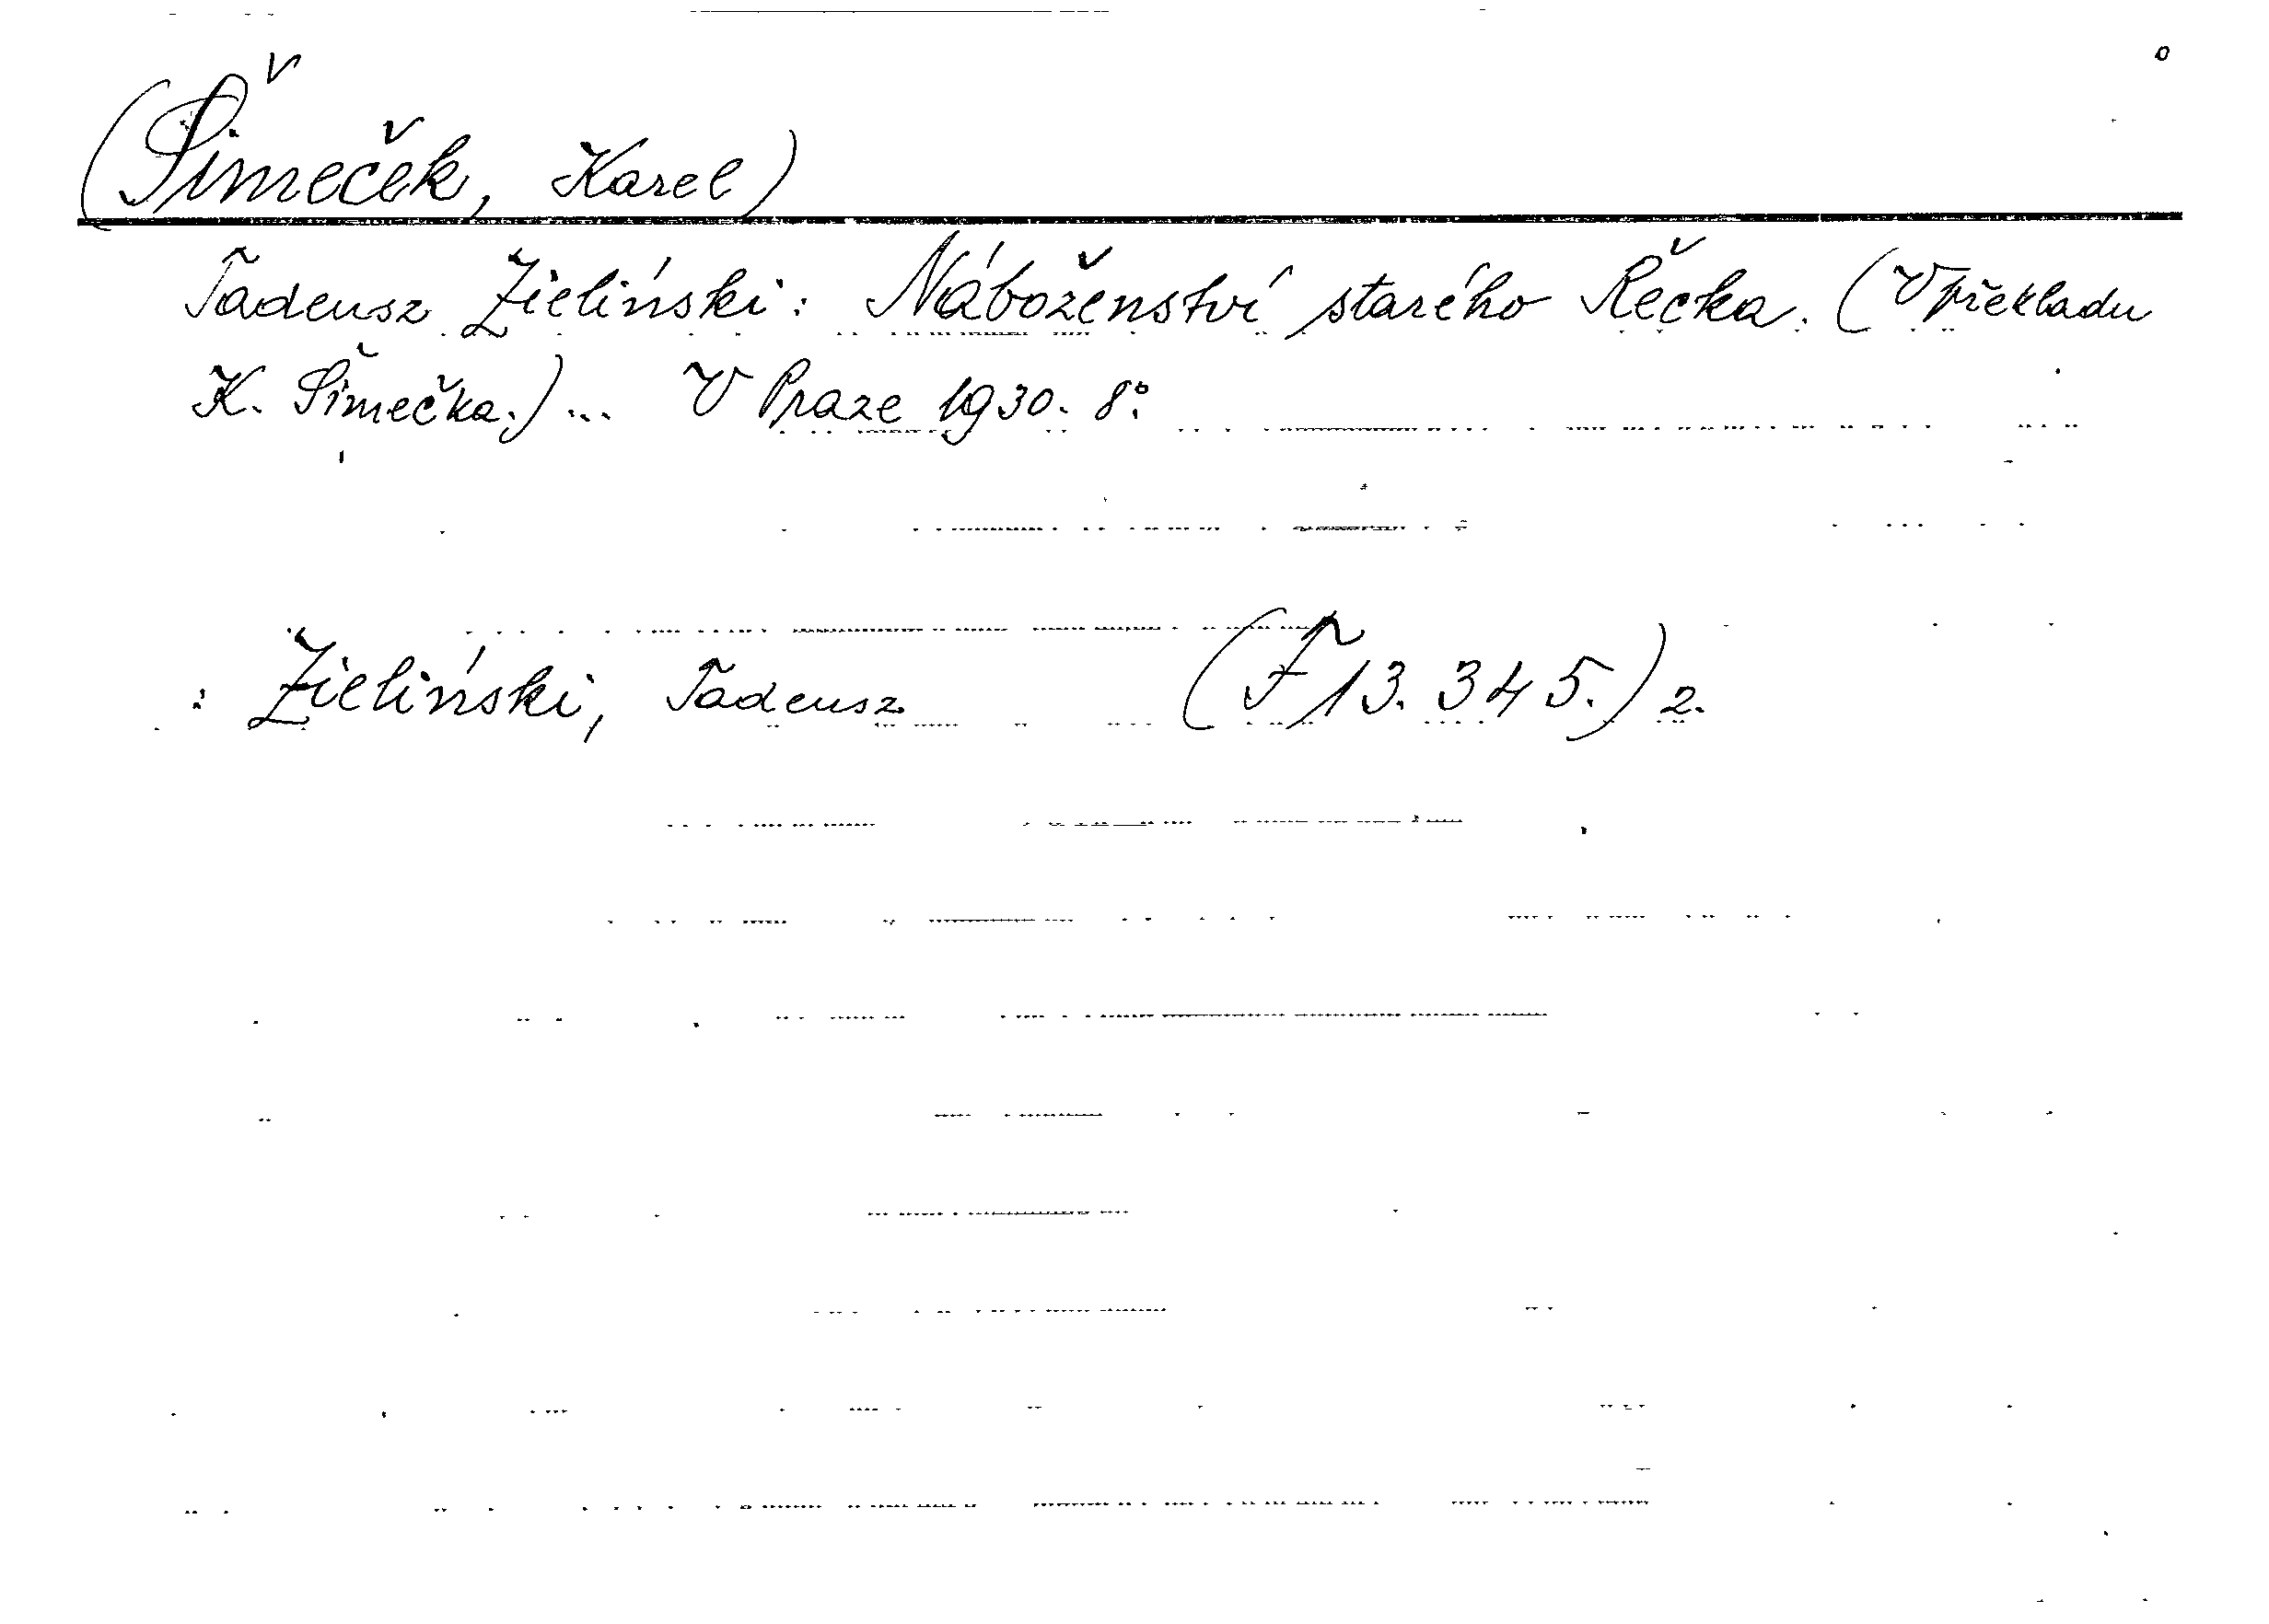 (Šimeček, Karel)
Tadeusz Zieliński: Náboženství starého Řecka. (V překladu
K. Šimečka.) ... V Praze 1930. 8°.
: Zieliński, Tadeusz (F 13.345.) 2.